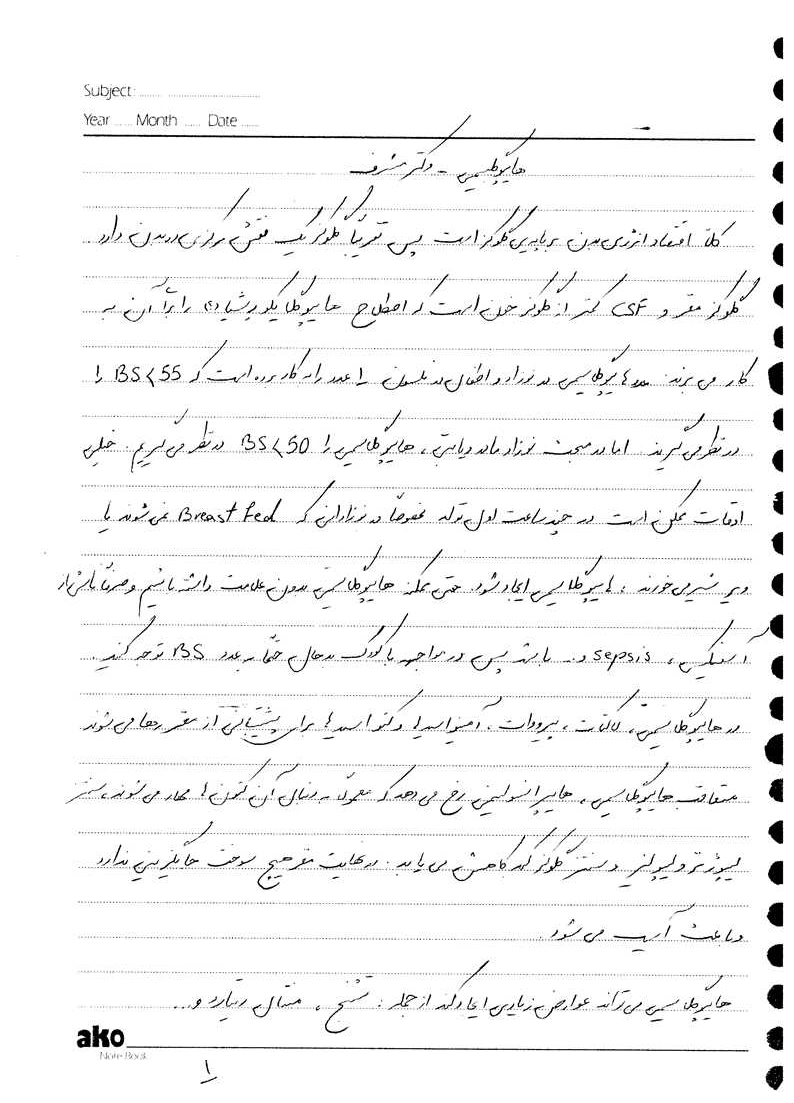 Subject:
Year Month Date
هایپوگلیسمی - دکتر مشرف
کلاً اقتصاد انرژی بدن بر پایه‌ی گلوکز است پس تقریباً گلوکز یک نقش مرکزی در بدن دارد
گلوکز مغز و CSF کمتر از گلوکز خون است که اصطلاح هایپوگلایکوریشیا را برای آن به
کار می برند. عدد هایپوگلایسمی در نوزاد و اطفال در نلسون را عدد را به کار برده است که BS<55 را
در نظر می گیرند. اما در مبحث نوزاد مادر دیابتی، هایپوگلایسمی را BS<50 در نظر می گیریم. خیلی
اوقات ممکن است در چند ساعت اول تولد مخصوصاً در نوزادانی که Breast fed نمی شوند یا
دیر شیر می خورند، هایپوگلایسمی ایجاد شود. حتی ممکنه هایپوگلایسمی بدون علامت داشته باشیم و صرفاً ناشی از
آسفیکسی، sepsis و.. باشد پس در مواجهه با کودک بدحال حتماً به عدد BS توجه کنید.
در هایپوگلایسمی، لاکتات، پیرووات، آمینواسیدها و کتواسیدها برای پشتیبانی از مغز رها می شوند
متعاقب هایپوگلایسمی، هایپرانسولینمی رخ می دهد که معمولاً به دنبال آن کتون ها مهار می شوند، سنتز
لیپوژنز و لیپولیز و سنتز گلوکز کبد کاهش می یابد. در نهایت مغز هیچ سوخت جایگزینی ندارد
و باعث آسیب می شود.
هایپوگلایسمی می تواند عوارض زیادی ایجاد کند از جمله: تشنج، منتال ریتارد و...
ako
Note Book
۱